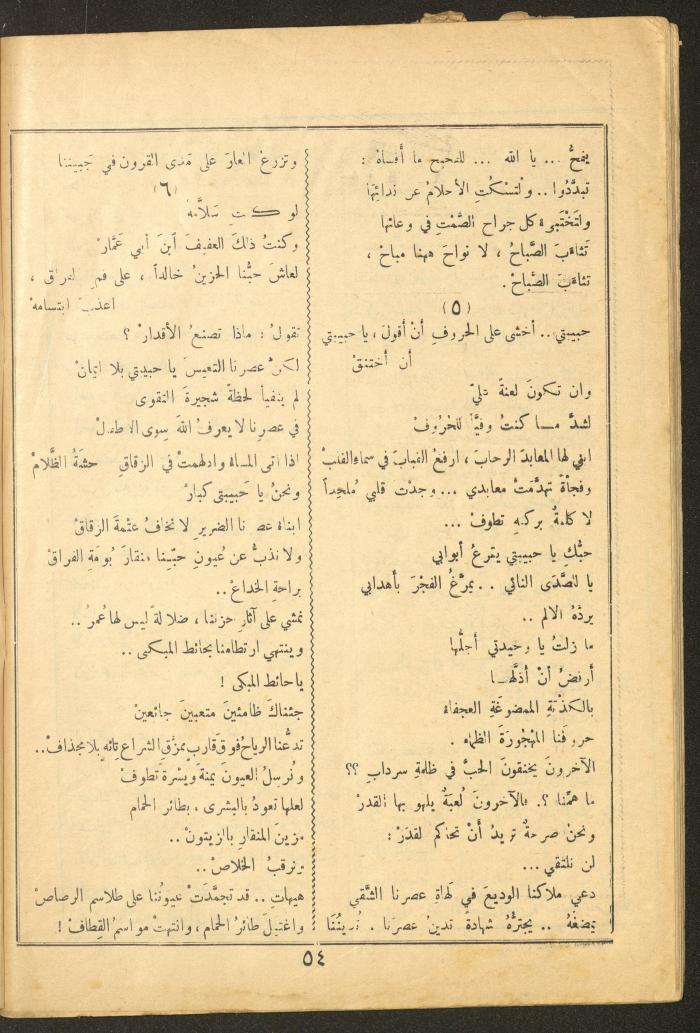 يفحُّ ... يا الله ... للفحيح ما أَقساهْ :
تبدَّدُوا .. ولتسكُتِ الأحلامُ عن ندائِها
ولتَخْتَبىء كل جراح الصَّمْتِ في وعائها
تَثاءَبَ الصَّباحُ ، لا نواحَ ههنا مباحْ ،
تثاءَبَ الصَّباحْ .
(٥)
حبيبتي .. أخشى على الحروفِ أنْ أقولَ ، يا حبيبتي
أن أختنقْ
وان تكونَ لعنةً عليّ
لشدَّ مــا كنتُ وفيَّاً للحُرُوفْ
ابني لها المعابدَ الرحابَ ، ارفعُ القبابَ في سماءِ القلبْ
وفجأةً تهدَّمَتْ معابدي ... وجدْت قلبي مُلحِداً
لا كلمةٌ بركنهِ تطوفْ ...
حبُّكِ يا حبيبتي يقرعُ أبوابي
يا للصَّدَى النائي .. يمرِّغُ الفجْرَ بأهدابي
يردُّهُ الالم ..
ما زلتُ يا وحيدتي أُجلُّها
أرفضُ أنْ أذلَّهــا
بالكذْبَةِ الممضوغَةِ العجفاءْ
حروفَنا المهْجُورَةَ الظماءْ .
الآخرونَ يخنقونَ الحبَّ في ظلمةِ سردابِ ؟؟
ما همَّنا ؟. فالآخرونَ لُعبَةٌ يلهو بها القدرْ
ونحنُ صرخةٌ تريدُ أَنْ تحاكم القدَرْ :
لن نلتقي ...
دعي ملاكنا الوديعَ في لهاةِ عصرنا الشَّقي
يمضغُهُ .. يجترُّهُ شهادةً تدينُ عصرَنا . تُديننَا
وتزرعُ العارَ على مَدى القرون في جَبيننا
(٦)
لو كنتِ سَلاَّمهْ
وكنتُ ذاكَ العفيفَ آبنَ أبي عَمَّارْ
لعاشَ حبُّنا الحزينُ خالداً ، على فمِ الفراق ،
اعذبَ ابتسامهْ
تقولُ : ماذا تصنعُ الأقدارْ ؟
لكنَّ عصرنا التعيسَ يا حبيبتي بلا ايمانْ
لم يتفيأ لحظةً شجيرةَ التقوى
في عصرِنا لا يعرفُ اللهَ سِوى الاطفالْ
اذا اتى المساءُ وادلهمتْ في الزقاقِ حشمةُ الظَّلامْ
ونحنُ يا حَبيبتي كبارْ
ابناءُ عصرنا الضريرِ لا نخافُ عتْمةَ الزقاقْ
ولا نذبُّ عن عُيونِ حبِّينا منقارَ بُومَةِ الفراقْ
براحةِ الخداعْ ..
نمشي على آثارِ حزننا ، ضلالةً ليس لها عُمرُ ..
وينتهي ارتطامنا بحائط المبكى ..
يا حائطَ المبكى !
جئناكَ ظامئينَ متعبينَ جائعينْ
تدعُّنا الرياحُ فوقَ قاربٍ ممزَّقِ الشراع تائهٍ بلا مجذافْ ..
ونُرسِلُ العيونَ يمنةً ويسْرةً تَطوفْ
لعلها تعودُ بالبشرى ، بطائر الحمام
مزينَ المنقارِ بالزيتونْ ..
نرقبُ الخلاصْ ..
هيهاتِ .. قد تجمَّدَتْ عيونُنا على طلاسم الرصاصْ
واغتيلَ طائرُ الحمام ، وانتهتْ مواسمُ القِطافْ !
٥٤